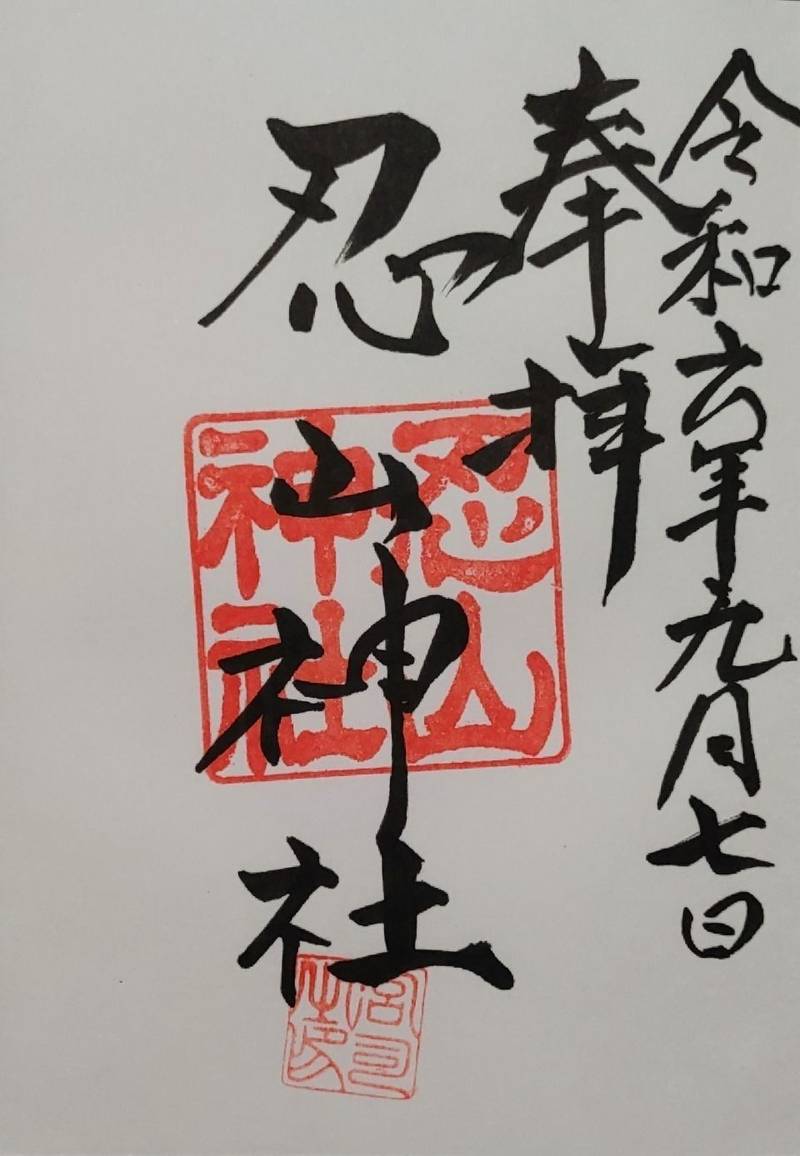 令和六年九月七日
奉拝
忍山神社
忍山
神社
宮司
之印